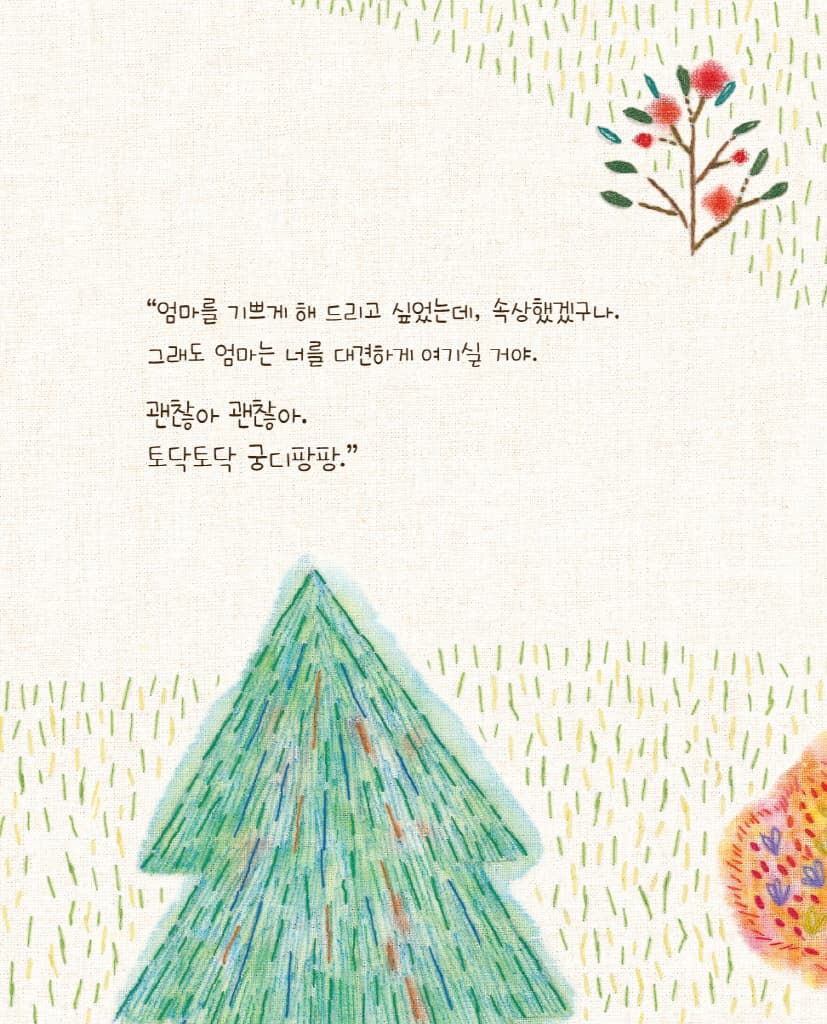 “엄마를 기쁘게 해 드리고 싶었는데, 속상했겠구나.
그래도 엄마는 너를 대견하게 여기실 거야.
괜찮아 괜찮아.
토닥토닥 궁디팡팡.”